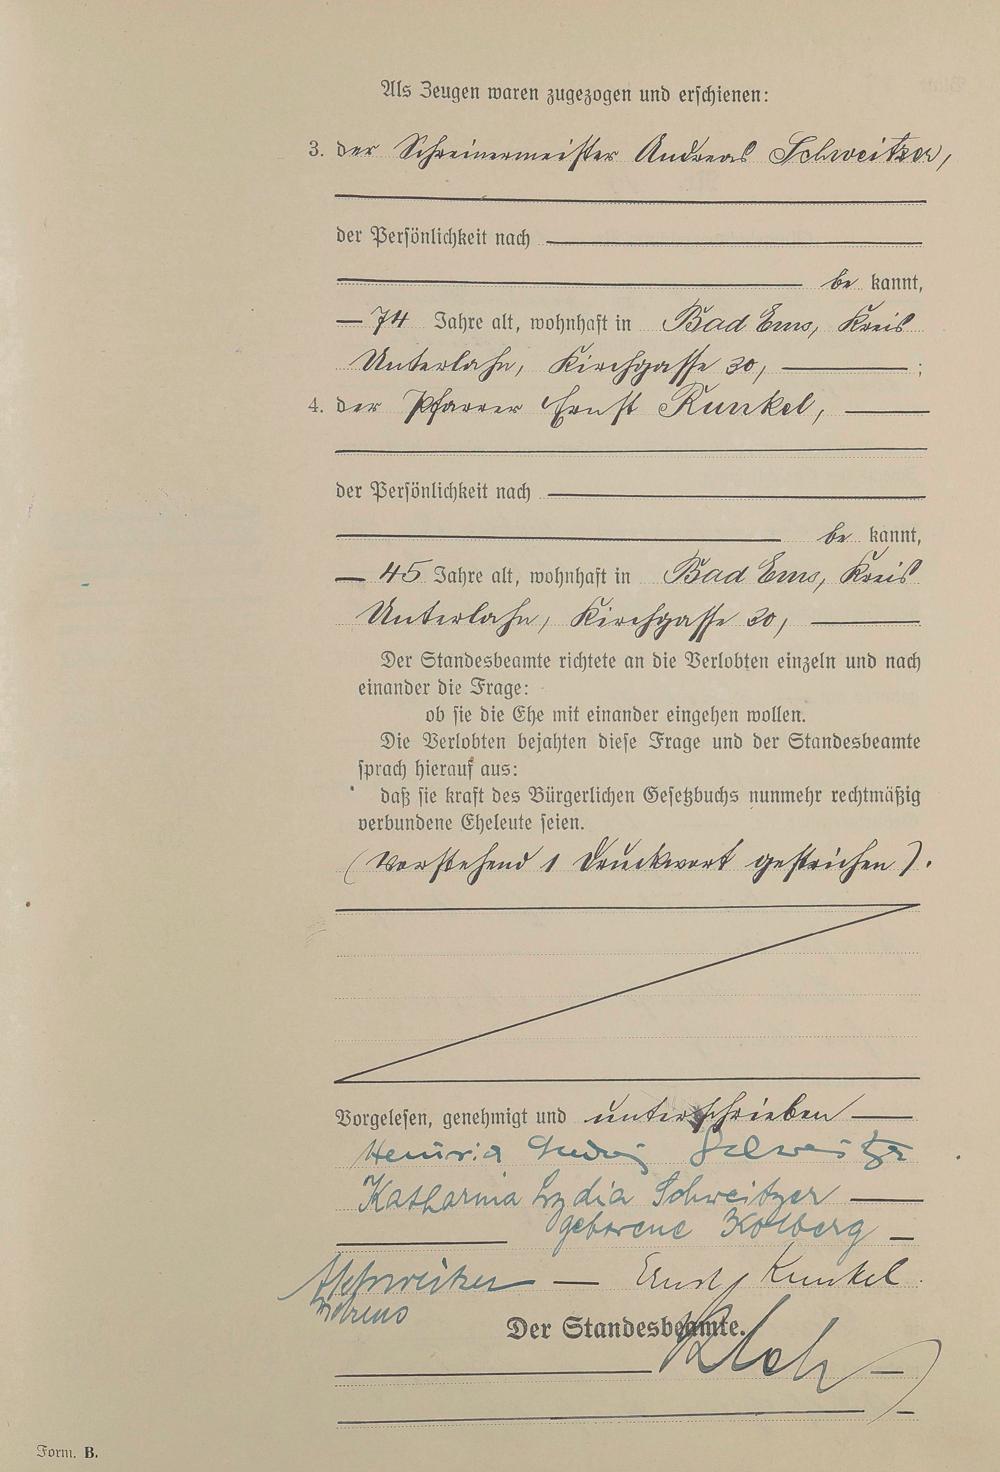 Als Zeugen waren zugezogen und erschienen:
3. der Schreinermeister Andreas Schweitzer,
der Persönlichkeit nach
be kannt,
74 Jahre alt, wohnhaft in Bad Ems, Kreis
Unterlahn, Kirchgasse 30, ;
4. der Pfarrer Ernst Runkel,
der Persönlichkeit nach
be kannt,
45 Jahre alt, wohnhaft in Bad Ems, Kreis
Unterlahn, Kirchgasse 20,
Der Standesbeamte richtete an die Verlobten einzeln und nach
einander die Frage:
ob sie die Ehe mit einander eingehen wollen.
Die Verlobten bejahten diese Frage und der Standesbeamte
sprach hierauf aus:
daß sie kraft des Bürgerlichen Gesetzbuchs nunmehr rechtmäßig
verbundene Eheleute seien.
(Vorstehend 1 Druckwort gestrichen).
Vorgelesen, genehmigt und unterschrieben
Heinrich Ludwig Schweitzer
Katharina Lydia Schweitzer
geborene Kolberg
Schweitzer Ernst Runkel.
Der Standesbeamte.
Form. B.